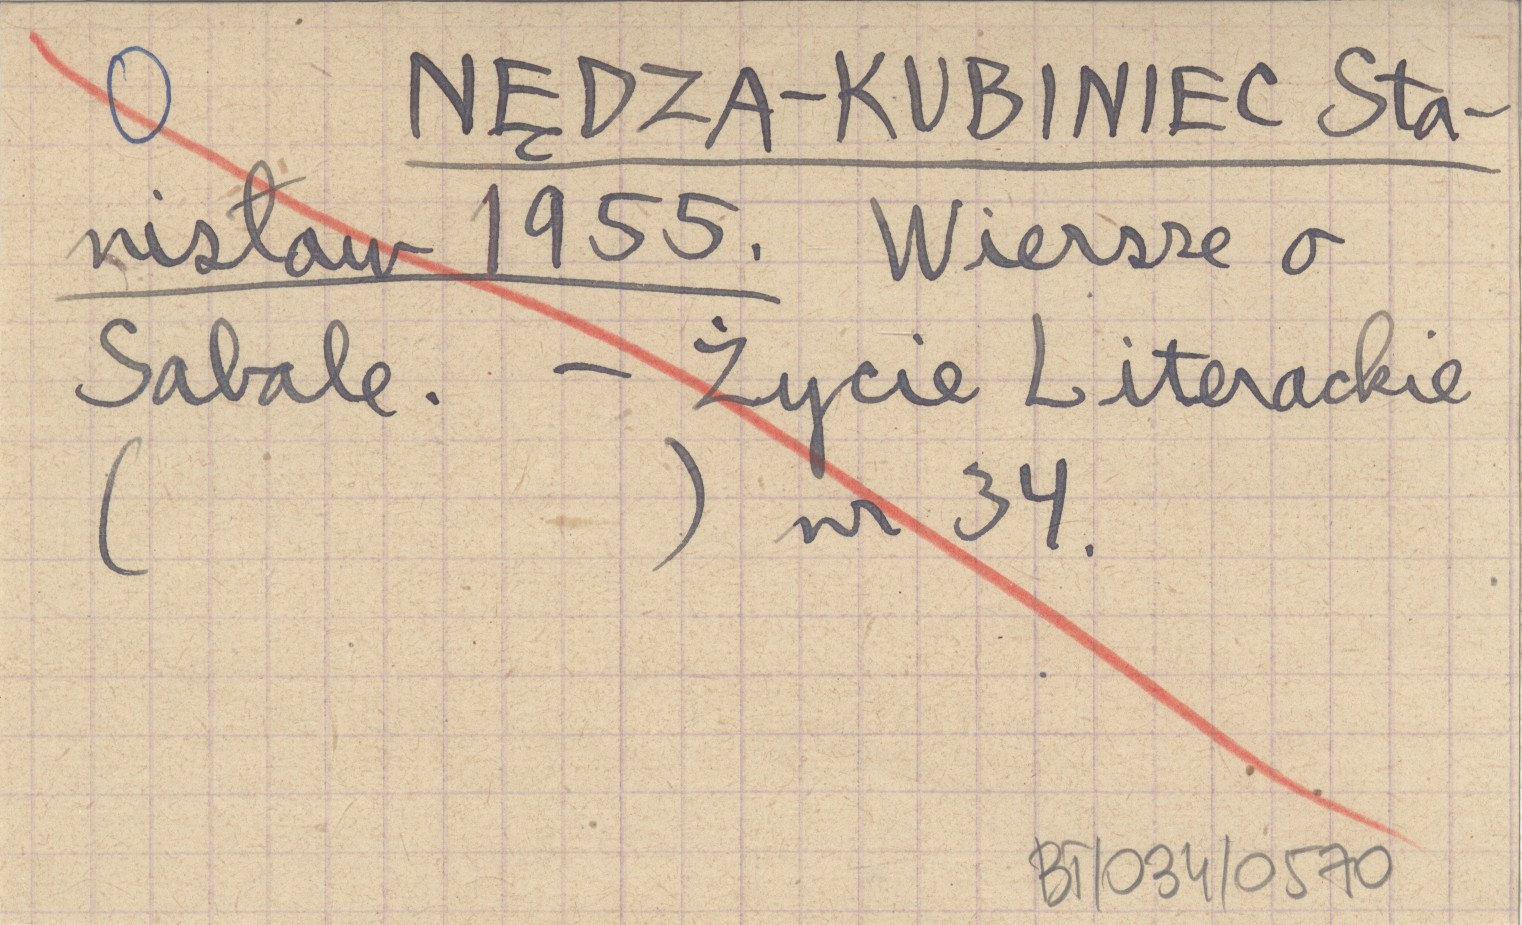 O NĘDZA-KUBINIEC Sta-
nisław 1955. Wiersze o
Sabale. - Życie Literackie
( ) nr 34.
BT/034/0570